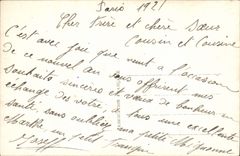 Paris 1921
Cher Frère et chère Sœur
Cousin et Cousine
C'est avec joie que vient à l'occasion
de ce nouvel an vous offrir mes
souhaits sincères et vœux de bonheur en
échange des vôtres, à tous une excellente
santé, sans oublier ma petite
Marthe, un petit
Joseph